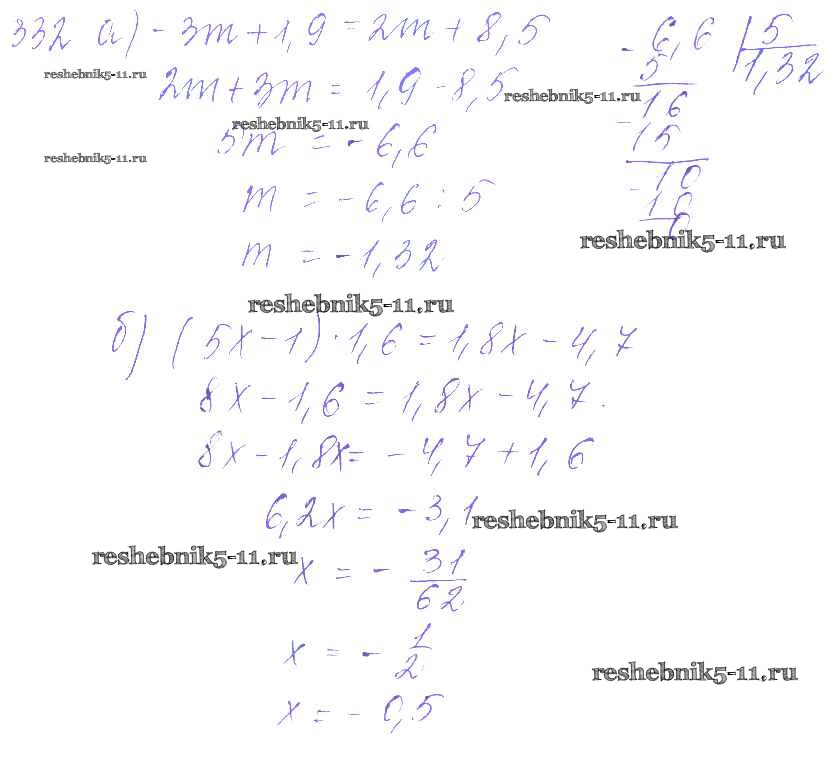 332 а) - 3m + 1,9 = 2m + 8,5
reshebnik5-11.ru
2m + 3m = 1,9 - 8,5
reshebnik5-11.ru
reshebnik5-11.ru
5m = - 6,6
reshebnik5-11.ru
m = - 6,6 : 5
m = - 1,32
- 6,6 | 5
5 1,32
16
- 15
10
- 10
0
reshebnik5-11.ru
reshebnik5-11.ru
б) (5x - 1) · 1,6 = 1,8x - 4,7
8x - 1,6 = 1,8x - 4,7.
8x - 1,8x = - 4,7 + 1,6
6,2x = - 3,1
reshebnik5-11.ru
reshebnik5-11.ru
x = - 31/62
x = - 1/2
reshebnik5-11.ru
x = - 0,5